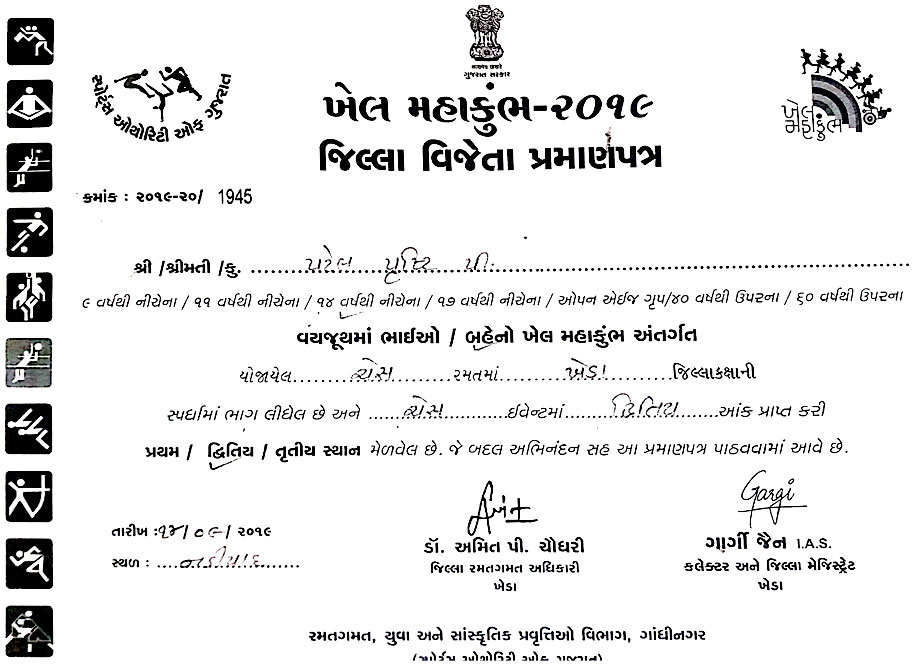 सत्यमेव जयते
ગુજરાત સરકાર
સ્પોર્ટ્સ ઓથોરિટી ઓફ ગુજરાત
ખેલ મહાકુંભ
ખેલ મહાકુંભ-૨૦૧૯
જિલ્લા વિજેતા પ્રમાણપત્ર
ક્રમાંક : ૨૦૧૯-૨૦/ 1945
શ્રી /શ્રીમતી /કુ. પટેલ પી.
૯ વર્ષથી નીચેના / ૧૧ વર્ષથી નીચેના / ૧૪ વર્ષથી નીચેના / ૧૭ વર્ષથી નીચેના / ઓપન એઈજ ગૃપ/૪૦ વર્ષથી ઉપરના / ૬૦ વર્ષથી ઉપરના
વયજૂથમાં ભાઈઓ / બહેનો ખેલ મહાકુંભ અંતર્ગત
યોજાયેલ ચેસ રમતમાં ખેડા જિલ્લાકક્ષાની
સ્પર્ધામાં ભાગ લીધેલ છે અને ચેસ ઈવેન્ટમાં દ્વિતિય આંક પ્રાપ્ત કરી
પ્રથમ / દ્વિતિય / તૃતીય સ્થાન મેળવેલ છે. જે બદલ અભિનંદન સહ આ પ્રમાણપત્ર પાઠવવામાં આવે છે.
Gargi
તારીખ : /૦૯/ ૨૦૧૯
સ્થળ : નડીયાદ
ડૉ. અમિત પી. ચૌધરી
જિલ્લા રમતગમત અધિકારી
ખેડા
ગાર્ગી જૈન I.A.S.
કલેક્ટર અને જિલ્લા મેજિસ્ટ્રેટ
ખેડા
રમતગમત, યુવા અને સાંસ્કૃતિક પ્રવૃત્તિઓ વિભાગ, ગાંધીનગર
(સ્પોર્ટ્સ ઓથોરિટી ઓફ ગુજરાત)